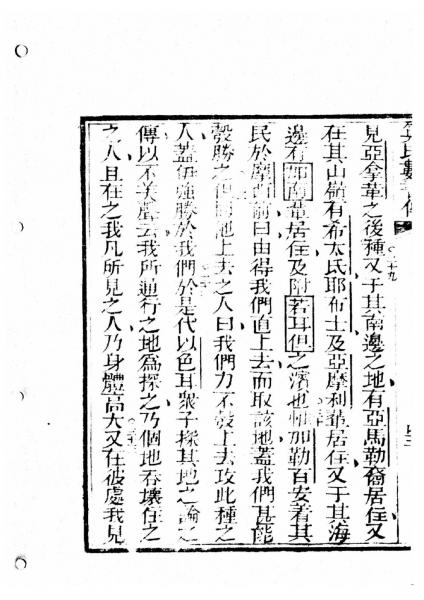 見亞拿華之後種又于其南邊之地有亞馬勒裔居住又
在其山嶺有希太氏耶布士及亞摩利輩居住又于其海
邊有加南輩居住及附若耳但之濱也惟加勒百安着其
民於摩西前曰由得我們直上去而取該地蓋我們甚能
彀勝之但同他上去之人曰我們力不彀上去攻此種之
人蓋伊強勝於我們於是代以色耳衆子探其地之論之
傳以不美處云我所通行之地為探之乃個地吞壞住之
之人且在之我凡所見之人乃身體高大又在彼處我見